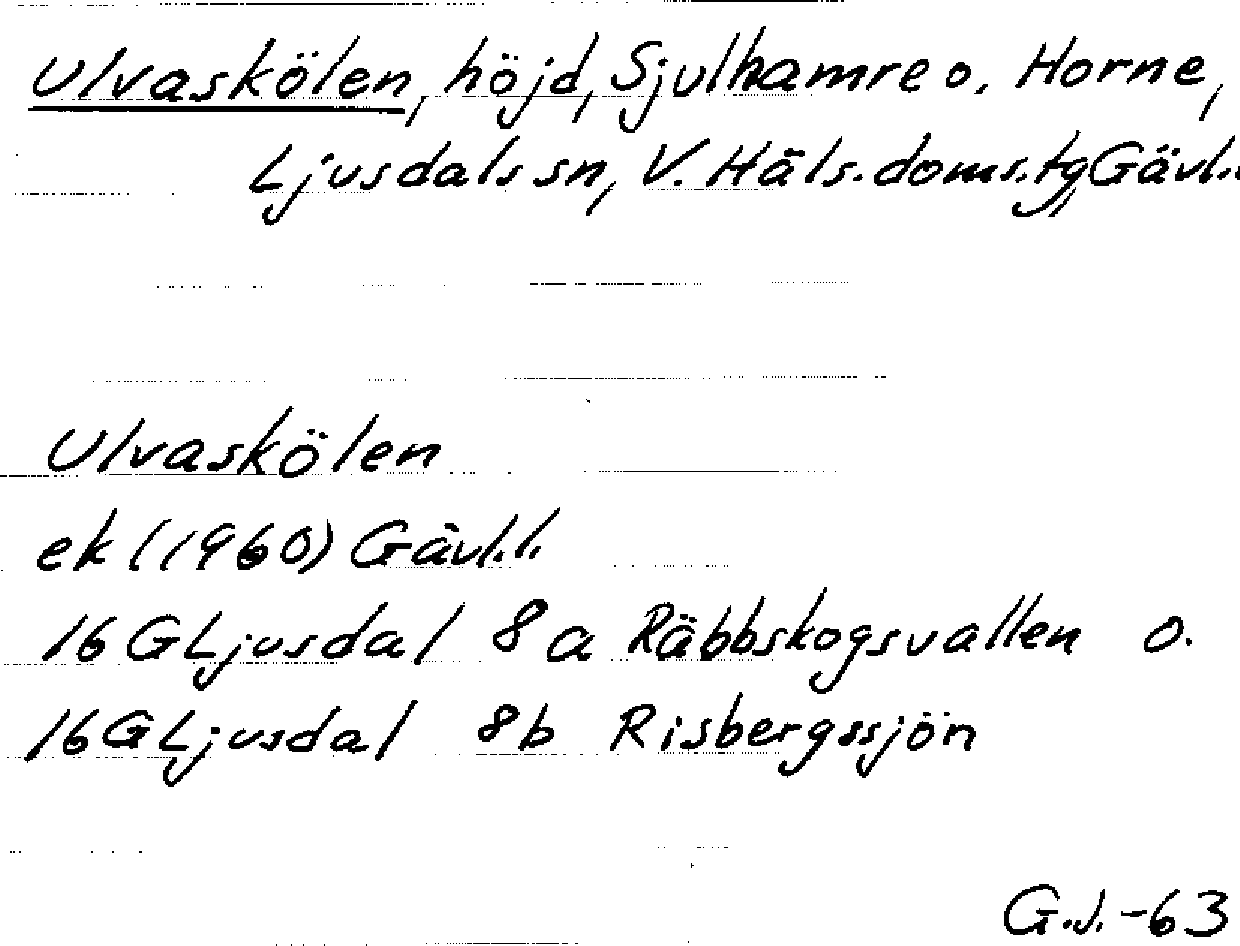 Ulvaskölen, höjd, Sjulhamre o. Horne,
Ljusdals sn, V. Häls. doms. tg, Gävl.
Ulvaskölen
ek (1960) Gävl.l.
16 G Ljusdal 8 a Räbbskogsvallen o.
16 G Ljusdal 8b Risbergssjön
G.J.-63